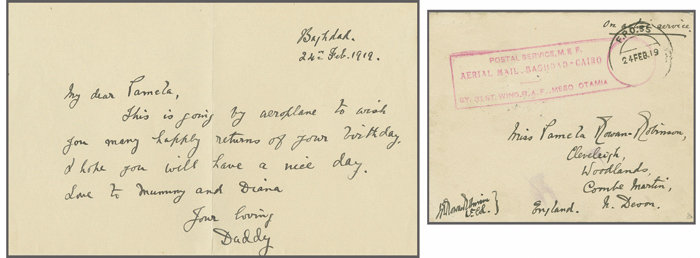 Baghdad.
24th Feb. 1919.
My dear Pamela,
This is going by aeroplane to wish
you many happy returns of your birthday.
I hope you will have a nice day.
Love to Mummy and Diana
Your loving
Daddy
On active service
F.P.O. 55
24 FEB. 19
POSTAL SERVICE, M.E.F.
AERIAL MAIL. BAGHDAD-CAIRO
BY 31ST. WING, R.A.F., MESOPOTAMIA
Miss Pamela Rowan Robinson,
Cleveleigh,
Woodlands,
Combe Martin,
N. Devon.
England.